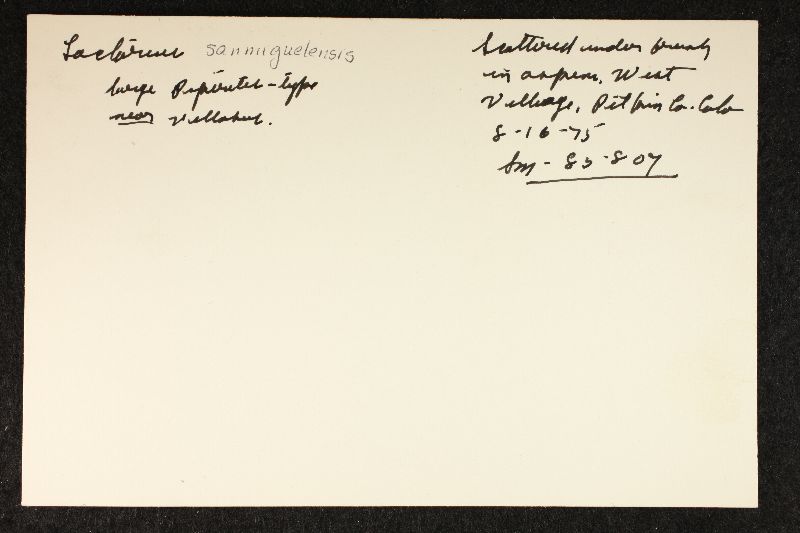 Lactarius sanmiguelensis
large Piperites-type
near villosus.
Scattered under
in aspen, West
Village, Pitkin Co. Colo
8-16-75
Sm-83-807